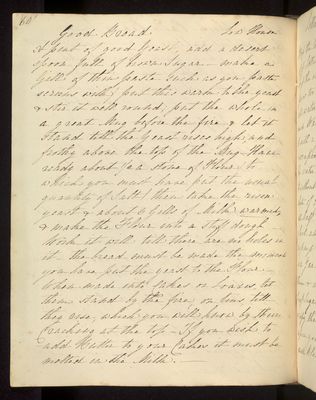 60
Good Bread.
A pint of good Yeast, add a desert
spoon full of brown Sugar - make a
Gill of thin paste such as you paste
screens with, put this warm to the yeast
& stir it well round, put the whole in
a great Mug before the fire & let it
stand till the yeast rises high and
frothy above the top of the Mug. Have
ready about ½ a stone of Flour, to
which you must have put the usual
quantity of Salt, then take the risen
yeast & about 3 Gills of Milk warmed,
& make the Flour into a stiff dough
Work it well till there are no holes in
it - the bread must be made the moment
you have put the yeast to the Flour.
When made into Cakes or loaves let
them stand by the fire, on tins till
they rise, which you will know by their
Cracking at the top - If you wish to
add Butter to your Cakes it must be
melted in the Milk.